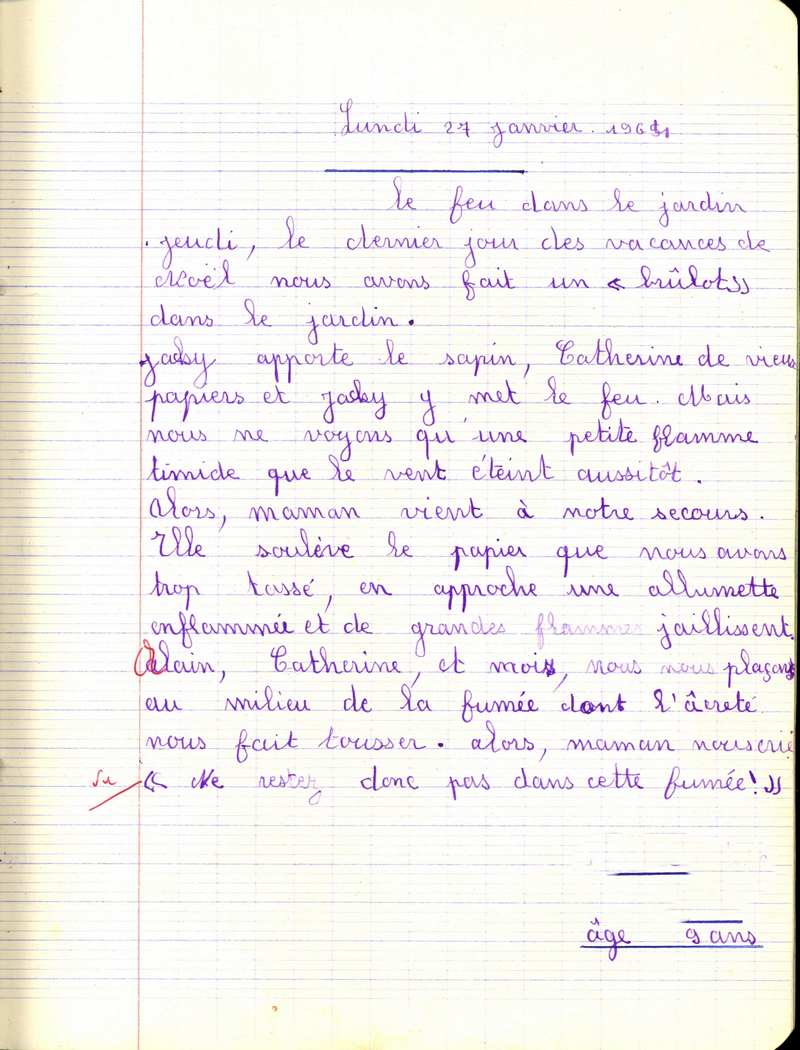 Lundi 27 janvier. 1961
le feu dans le jardin
. jeudi, le dernier jour des vacances de
Noël nous avons fait un « brûlot »
dans le jardin.
Jacky apporte le sapin, Catherine de vieux
papiers et Jacky y met le feu. Mais
nous ne voyons qu'une petite flamme
timide que le vent éteint aussitôt.
Alors, maman vient à notre secours.
Elle soulève le papier que nous avons
trop tassé, en approche une allumette
enflammée et de grandes flammes jaillissent.
Alain, Catherine, et moi, nous nous plaçons
au milieu de la fumée dont l'âcreté
nous fait tousser. alors, maman nous crie
« Ne restez donc pas dans cette fumée! »
âge 9 ans